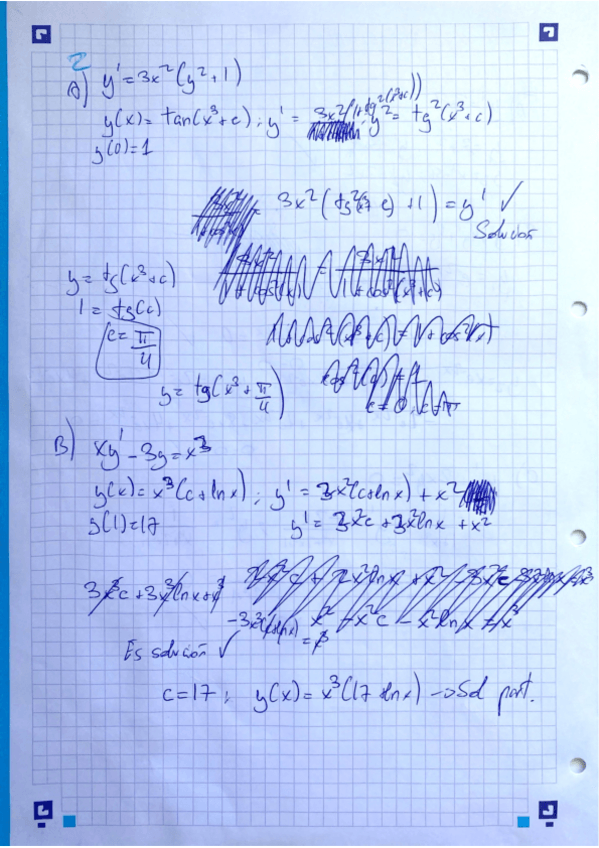 2
A) y' = 3x²(y²+1)
y(x) = tan(x³+c) ; y' = 3x²(1+tg²(x³+c)) ; y² = tg²(x³+c)
y(0)=1
+1) = y' ✓
Solución
y = tg(x³+c)
1 = tg(c)
c = π/4
y = tg(x³ + π/4)
B) xy' - 3y = x³
y(x) = x³(c+lnx) ; y' = 3x²(c+lnx) + x²
y(1)=17
y' = 3x²c + 3x²lnx + x²
3x³c + 3x³lnx + x³
-3x³(c+lnx)
Es solución ✓
c=17 ; y(x) = x³(17+lnx) → Sol part.